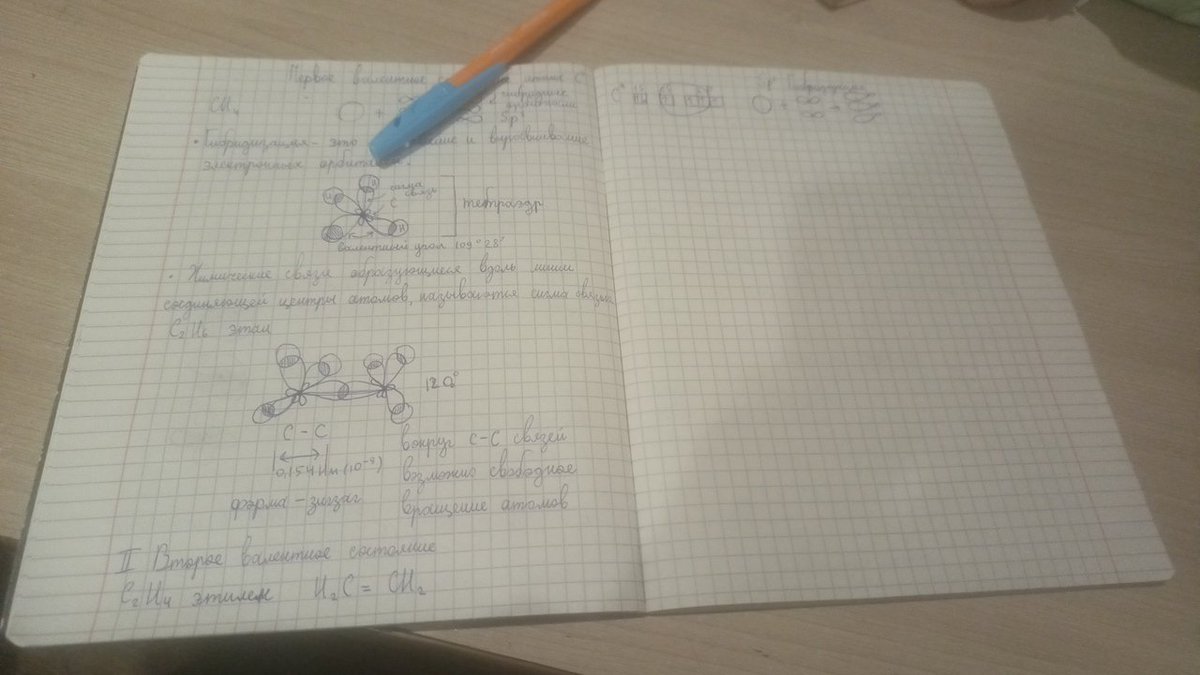 Первое валентное атома С
CH₄
гибридные
орбитали
sp³
• Гибридизация - это и выравнивание
электронных орбиталей.
H
H
сигма
связь
C
H
тетраэдр
валентный угол 109°28'
• Химические связи образующиеся вдоль линии
соединяющей центры атомов, называются сигма связью
C₂H₆ этан
120°
C - C
0,154 Нм (10⁻⁹)
форма - зигзаг
вокруг С-С связей
возможно свободное
вращение атомов
II Второе валентное состояние
C₂H₄ этилен H₂C = CH₂
C*
Гибридизация